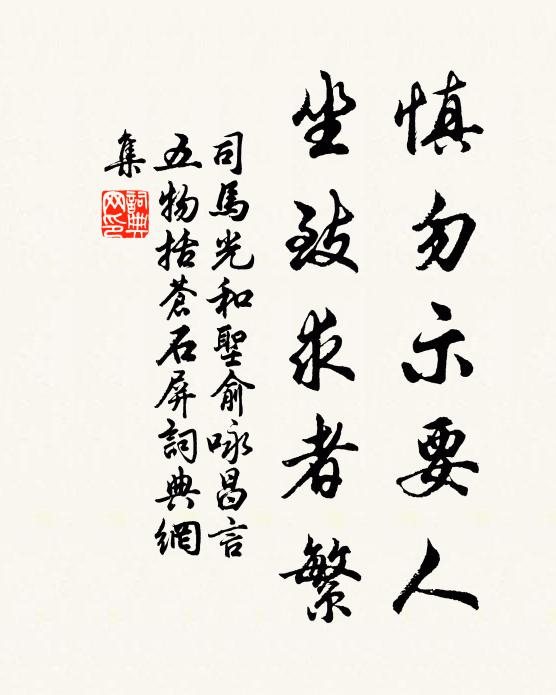 慎勿示要人
坐致求者繁
司馬光和聖俞咏昌言
五物括蒼石屏詞典網
集
詞典网印